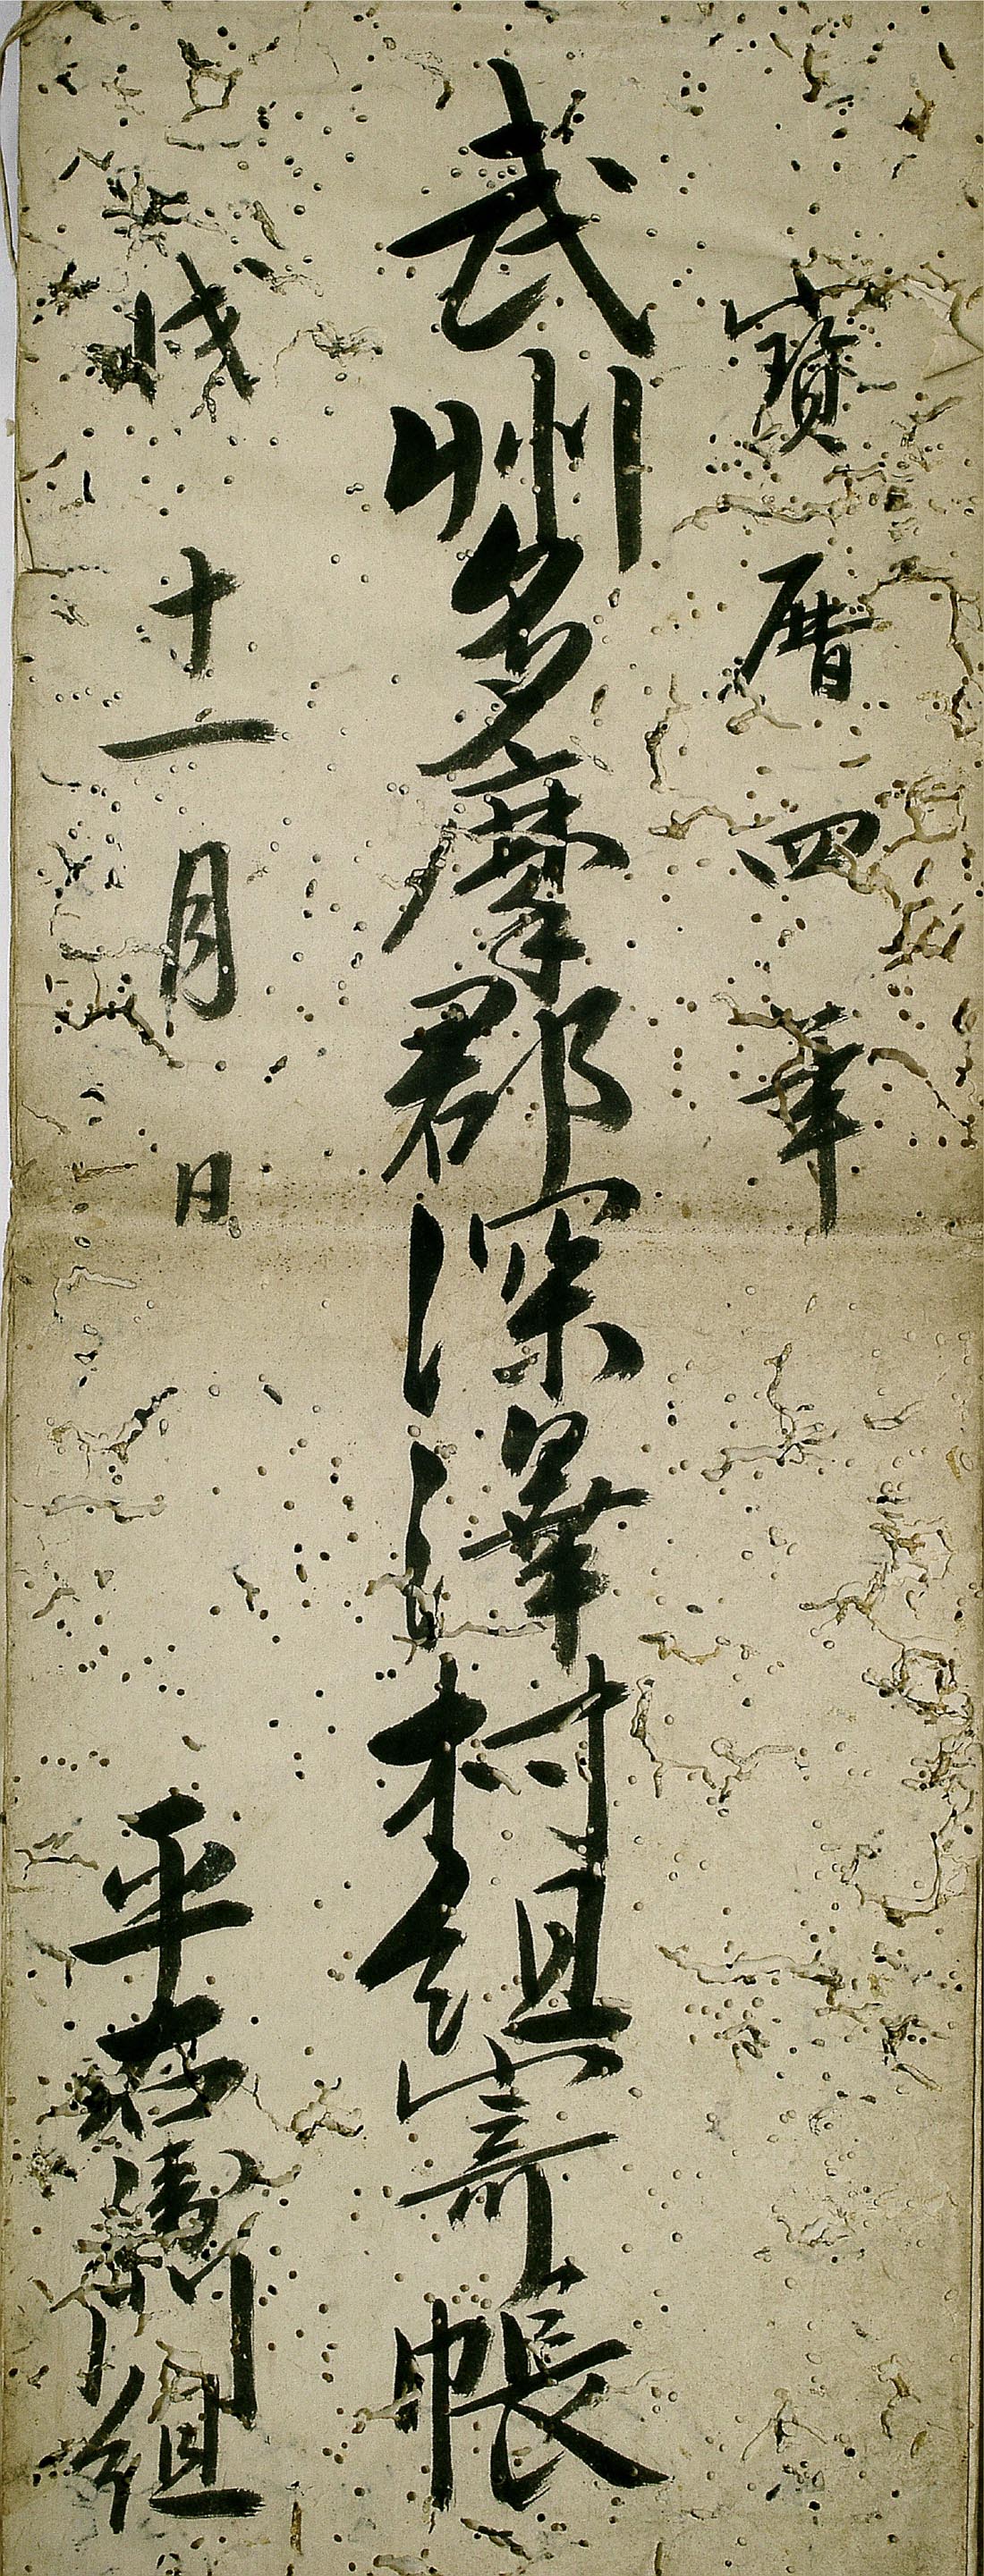 寳暦四年
武州多摩郡深澤村組寄帳
戌十一月日 平右衛門組